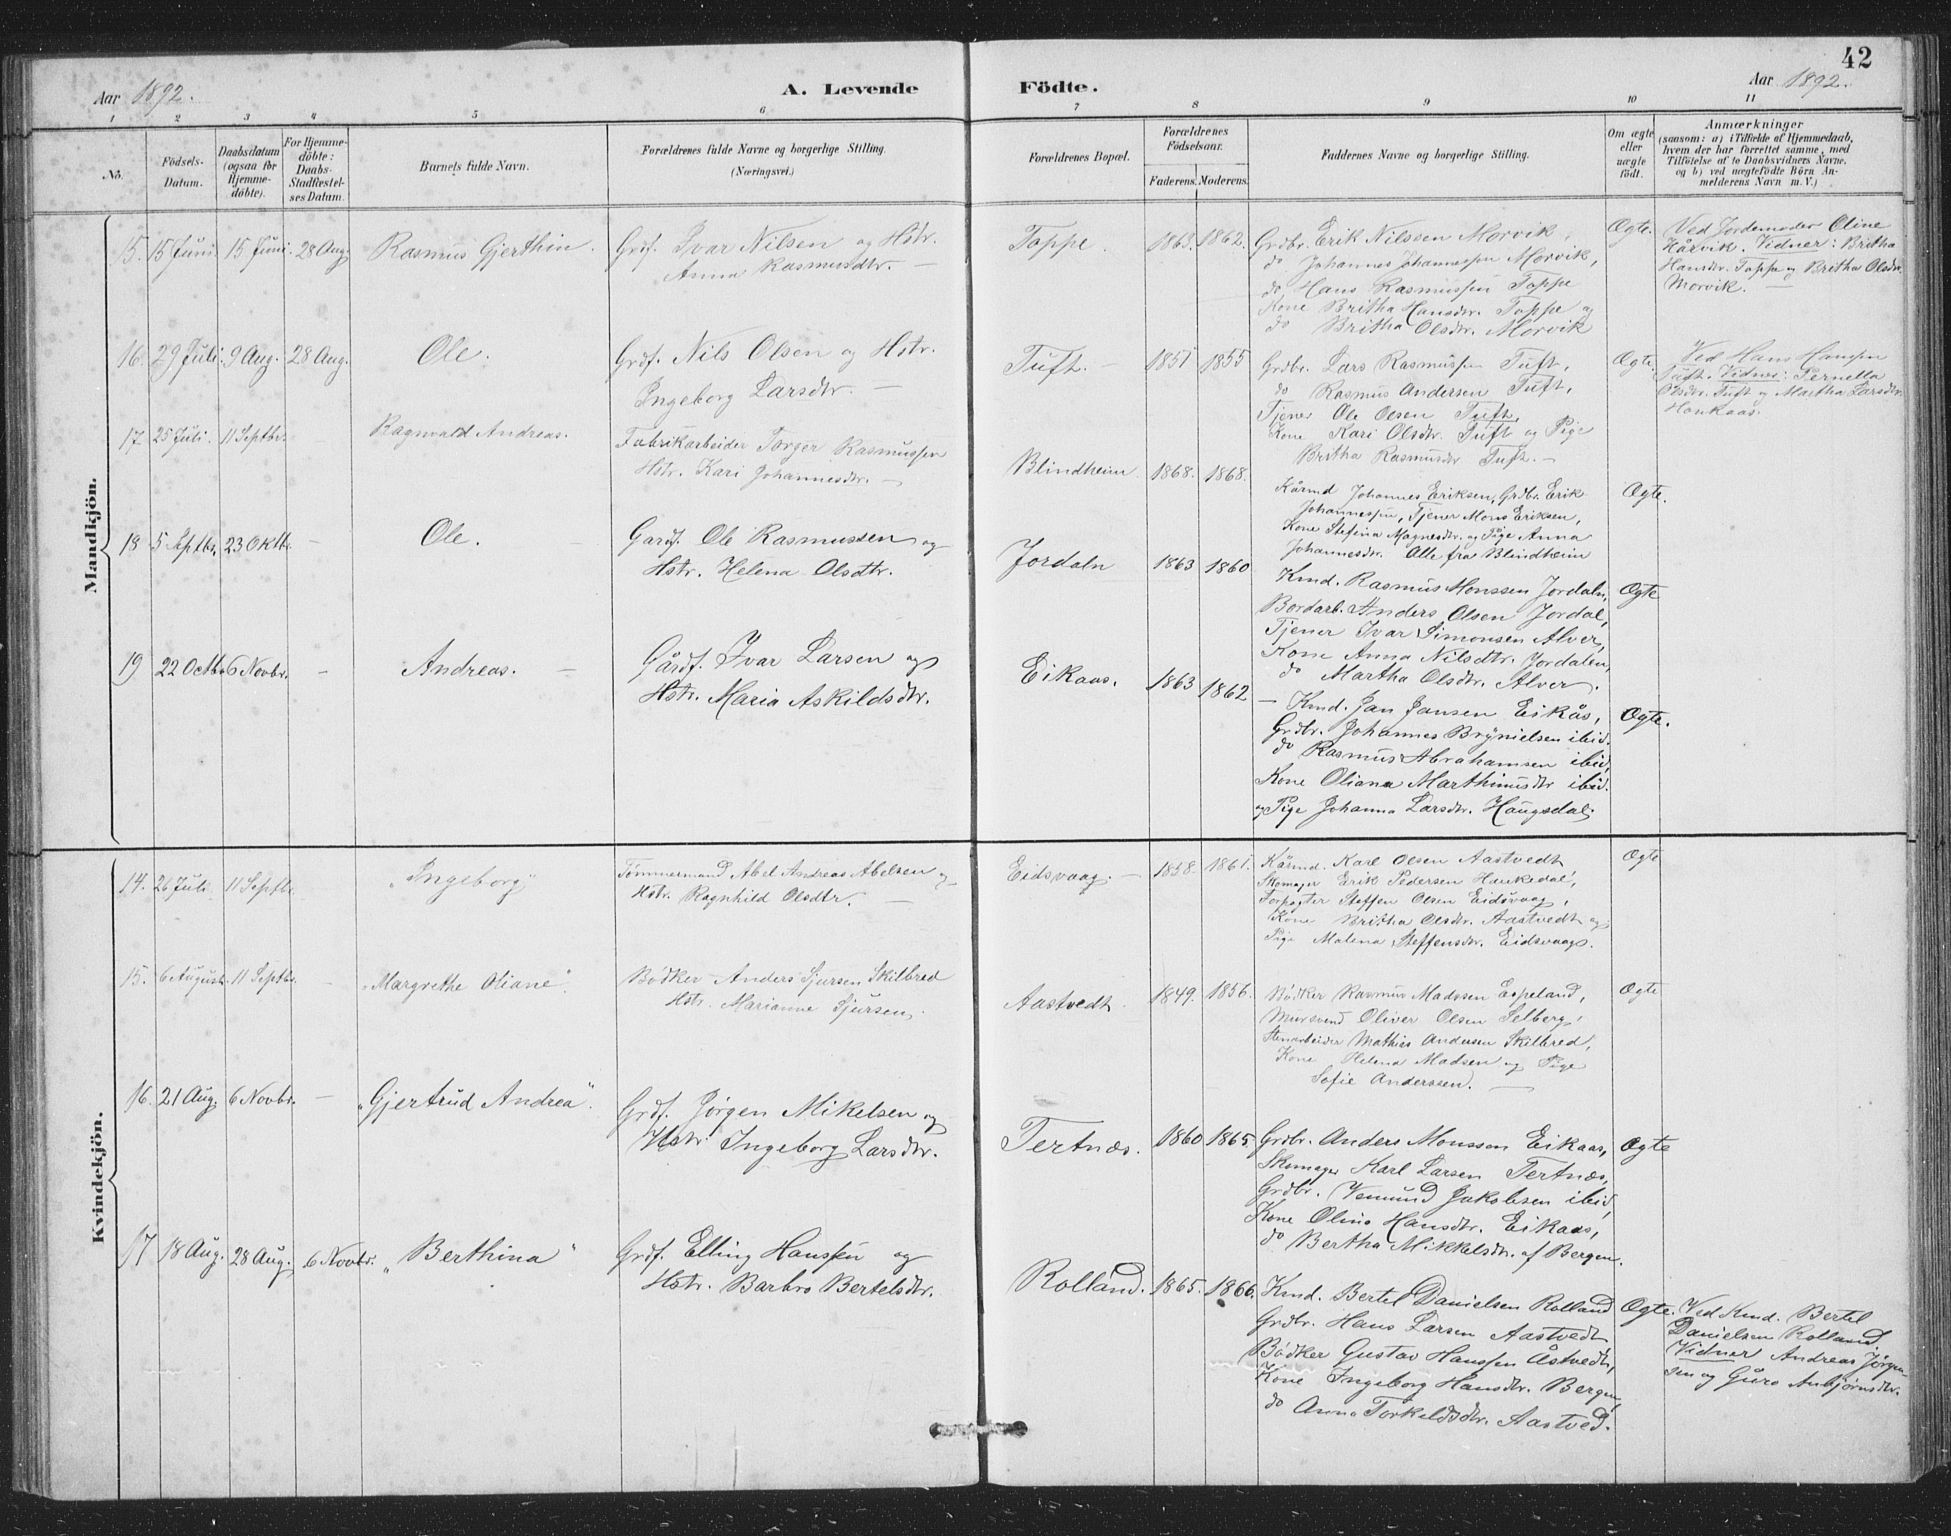 42
Aar 1892.
A. Levende Födte.
Aar 1892.
1 2 3 4 5 6 7 8 9 10 11
No.
Födsels-Datum.
Daabsdatum (ogsaa for Hjemme-döbte).
For Hjemme-döbte: Daabs-Stadfæstel-ses Datum.
Barnets fulde Navn.
Forældrenes fulde Navne og borgerlige Stilling.
(Næringsvei.)
Forældrenes Bopæl.
Forældrenes Födselsaar.
Faderens. Moderens.
Faddernes Navne og borgerlige Stilling.
Om ægte eller uægte födt.
Anmærkninger
(saasom: a) i Tilfælde af Hjemmedaab,
hvem der har forrettet samme, med
Tilföielse af to Daabsvidners Navne.
og b) ved uægtefödte Börn An-
melderens Navn m. V.)
Mandkjön.
15. 15 Juni. 15 Juni. 28 Aug. Rasmus Gjerthin.
Grdf. Ivar Nilsen og Hstr.
Anna Rasmusdtr. —
Toppe. 1863. 1862.
Grdbr. Erik Nilssen Morvik,
do Johannes Johannessen Morvik,
do Hans Rasmussen Toppe
Kone Britha Hansdtr. Toppe og
do Britha Olsdtr. Morvik
Ægte.
Ved Jordemoder Oline
Hårvik. Vidner: Britha
Hansdtr. Toppe og Britha Olsdtr.
Morvik. —
16. 29 Juli. 9 Aug. 28 Aug. Ole.
Grdf. Nils Olsen og Hstr.
Ingeborg Larsdtr. —
Tuft. — 1851 1855
Grdbr. Lars Rasmussen Tuft,
do Rasmus Andersen Tuft,
Tjener Ole Olsen Tuft,
Kone Kari Olsdtr. Tuft og Pige
Britha Rasmusdtr Tuft. —
Ægte.
Ved Hans Hansen
Tuft. Vidner: Pernella
Olsdtr. Tuft og Martha Larsdtr.
Haukaas.
17 25 Juli. 11 Septbr. — Ragnvald Andreas.
Fabrikarbeider Torger Rasmussen
Hstr. Kari Johannesdtr. —
Blindheim 1868. 1868.
Kårmd Johannes Eriksen, Grdbr. Erik
Johannessen, Tjener Mons Eriksen,
Kone Stefina Magnesdtr. og Pige Anna
Johannesdtr. Alle fra Blindheim
Ægte.
18 5 Septbr. 23 Oktbr. — Ole. —
Gardf. Ole Rasmussen og
Hstr. Helena Olsdtr.
Jordaln 1863 1860
Kmd. Rasmus Monssen Jordaln,
Bordarb. Anders Olsen Jordal,
Tjener Ivar Simonsen Alver,
Kone Anna Nilsdtr. Jordalen,
do Martha Olsdtr. Alver.
Ægte
19 22 Octbr. 6 Novbr. — Andreas. —
Gårdf. Ivar Larsen og
Hstr. Maria Askildsdtr.
Eikaas. 1863 1862
— Kmd. Jan Jansen Eikås,
Grdbr. Johannes Brynielsen ibid.
do Rasmus Abrahamsen ibid,
Kone Oliana Marthinusdtr ibid.
og Pige Johanna Larsdtr. Haugsdal.
Ægte.
Kvindekjön.
14. 26 Juli. 11 Septbr. „Ingeborg"
Tømmermand Abel Andreas Abelsen og
Hstr. Ragnhild Olsdtr. —
Eidsvaag. — 1858. 1861.
Kårmd. Karl Olsen Aastvedt
Skomager Erik Pedersen Haukedal,
Forpagter Steffen Olsen Eidsvaag,
Kone Britha Olsdtr. Aastvedt og
Pige Malena Steffensdtr. Eidsvaag.
Ægte
15. 6 August. 11 Septbr. — „Margrethe Oliane".
Bødker Anders Sjursen Skilbred
Hstr. Marianne Sjursen.
Aastvedt. 1849. 1856.
Bødker Rasmus Madssen Espeland,
Mursvend Oliver Olsen Selberg,
Stenarbeider Mathias Andersen Skilbred,
Kone Helena Madsen og Pige
Sofie Anderssen. —
Ægte
16. 21 Aug. 6 Novbr. — „Gjertrud Andrea".
Grdf. Jørgen Mikelsen og
Hstr. Ingeborg Larsdtr.
Tertnæs. 1860 1865
Grdbr. Anders Monssen Eikaas,
Skomager Karl Larsen Tertnæs,
Grdbr. Vemund Jakobsen ibid,
Kone Olina Hansdtr. Eikaas,
do Bertha Mikkelsdtr. af Bergen.
Ægte
17 18 Aug. 28 Aug. 6 Novbr. „Berthina"
Grdf. Elling Hanssen og
Hstr. Barbro Bertelsdtr.
Rolland. 1865. 1866.
Kmd. Bertel Danielsen Rolland
Grdbr. Hans Larsen Aastvedt
Bødker Gustav Hanssen Åstvedt,
Kone Ingeborg Hansdtr. Bergen,
do Anna Torkeldsdtr. Aastved.
Ægte.
Ved Kmd. Bertel
Danielsen Rolland.
Vidner Andreas Jørgen-
sen og Guro Anbjørnsdtr.